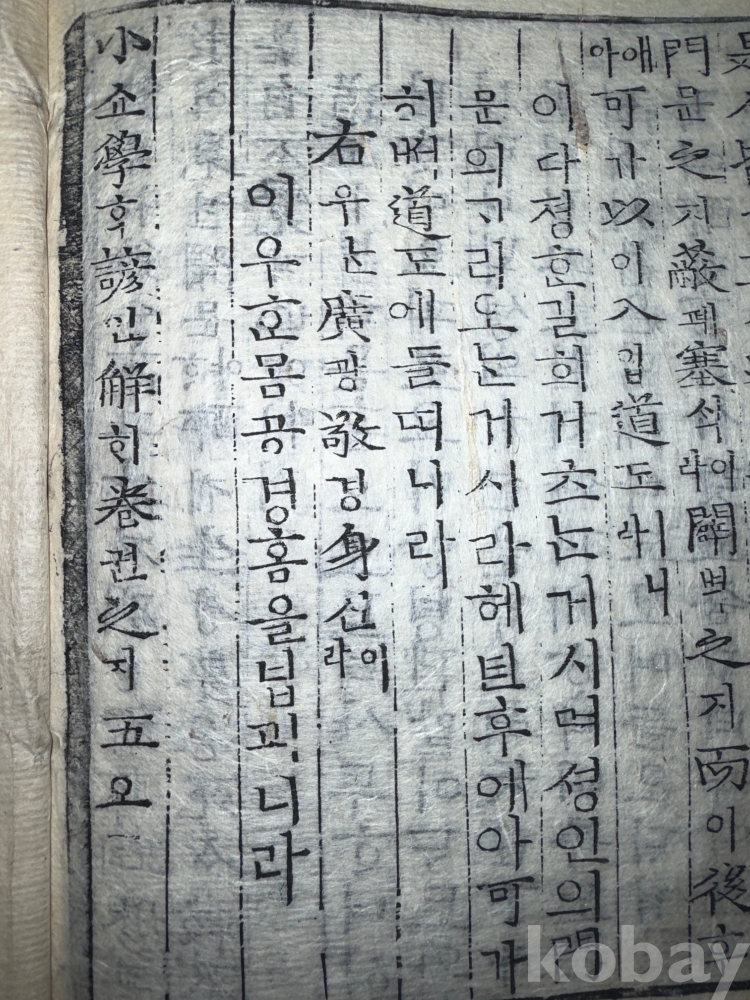 門문之지蔽폐塞ᄉᆡᆨ이라闢벽之지而이後후
애아可가以이入입道도ㅣ니라
이다졍ᄒᆞᆫ길희거츠ᄂᆞᆫ거시며셩인의門
문의ᄀᆞ리오ᄂᆞᆫ거시라헤틴후에아可가
히ᄡᅥ道도에들띠니라
右우ᄂᆞᆫ廣광敬경身신이라
이우ᄒᆞᆫ몸공경홈을넙피니라
小쇼學ᄒᆞᆨ諺언解ᄒᆡ卷권之지五오
kobay